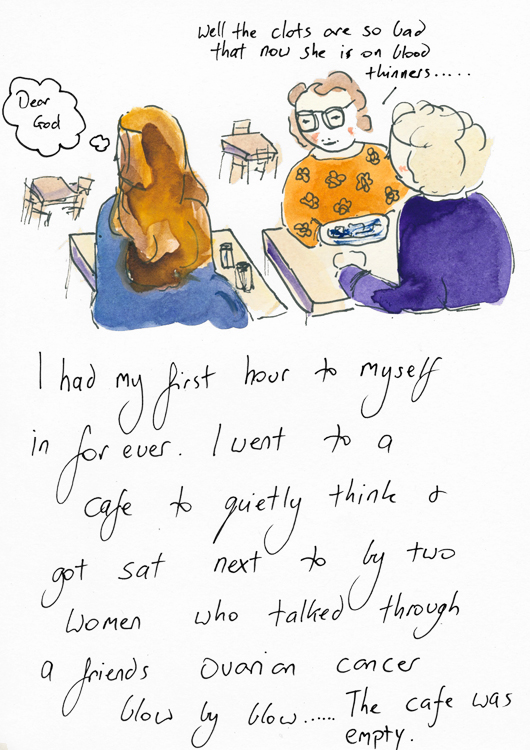 Well the clots are so bad
that now she is on blood
thinners.....
Dear
God
I had my first hour to myself
in for ever. I went to a
cafe to quietly think &
got sat next to by two
women who talked through
a friends ovarian cancer
blow by blow...... The cafe was
empty.